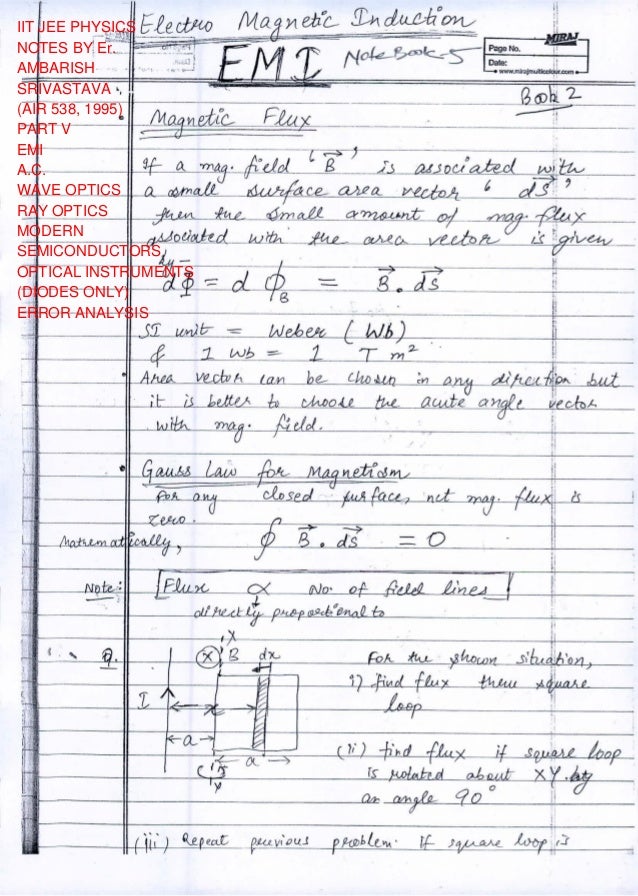 IIT JEE PHYSICS
NOTES BY Er.
AMBARISH
SRIVASTAVA
(AIR 538, 1995)
PART V
EMI
A.C.
WAVE OPTICS
RAY OPTICS
MODERN
SEMICONDUCTORS
OPTICAL INSTRUMENTS
(DIODES ONLY)
ERROR ANALYSIS
Electro Magnetic Induction
EMI NoteBook-5
MIRAJ
Page No.
Date:
www.mirajmulticolour.com
Book 2
Magnetic Flux
If a mag. field ‘B⃗’ is associated with
a small surface area vector ‘ds⃗’
then the small amount of mag. flux
associated with the area vector is given
by
dΦ = dϕ_B = B⃗ . ds⃗
SI unit = Weber (Wb)
& 1 Wb = 1 T m²
• Area vector can be chosen in any direction but
it is better to choose the acute angle vector
with mag. field.
• Gauss Law for Magnetism
For any closed surface, net mag. flux is
zero.
Mathematically, ∮ B⃗ . ds⃗ = 0
Note: Flux ∝ No. of field lines
directly proportional to
Q. For the shown situation,
i) find flux threw square
loop
(ii) find flux if square loop
is rotated about XY by
an angle 90°
X
B
dx
I
x
a
a
Y
(iii) Repeat previous problem. If square loop is